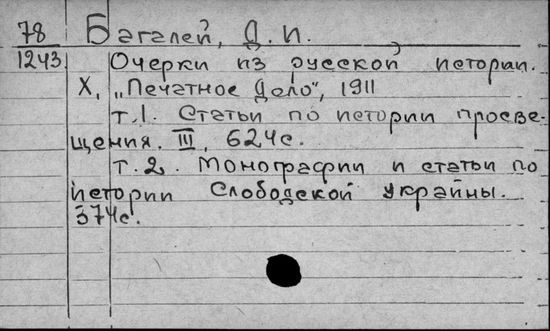 78 Багалей, Д. И.
1243 Очерки из русской истории.
Х, „Печатное Дело", 1911
т.1. Статьи по истории просве-
щения. III, 624с.
т. 2. Монографии и статьи по
истории Слободской Украйны.
374с.